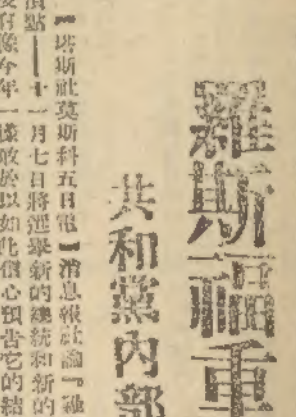 羅斯福重
共和黨內部
【塔斯社莫斯科五日電】消息報社論『雖
頂點——十一月七日將選舉新的總統和新的
沒有像今年一樣敢於以如此信心預告它的結